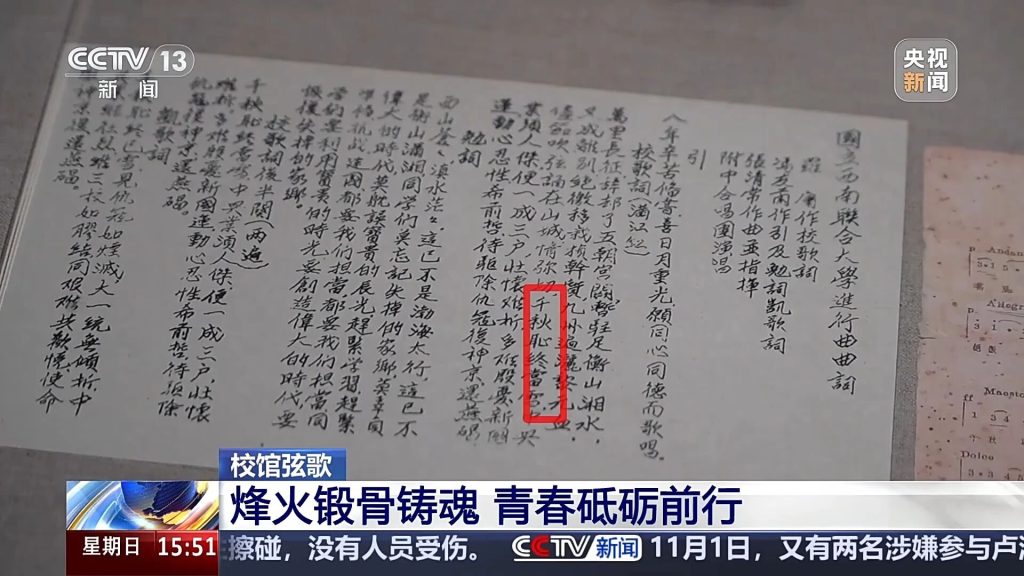 CCTV 13
新闻
央视
新闻
國立西南聯合大學進行曲曲詞
羅庸作校歌詞
馮友蘭作引及勉詞凱歌詞
張清常作曲並指揮
附中合唱團演唱
引
八年辛苦備嘗喜日月重光願同心同德而歌唱。
校歌詞（滿江紅）
萬里長征辭却了五朝宮闕暫駐足衡山湘水，
又成離別絕徼移栽楨幹質九州遍灑黎元血
儘笳吹弦誦在山城情彌切千秋恥終當雪中興
業須人傑便一成三戶壯懷難折多難殷憂新國
運動心忍性希前哲待驅除仇寇復神京還燕碣
勉詞
西山蒼〻滇水茫〻這已不是渤海太行，這已不
是衡山瀟湘同學們莫忘記失掉的家鄉莫辜負
偉大的時代莫耽誤寶貴的辰光趕緊學習趕緊
準備抗戰建國都要我們担當都要我們担當同
學們要利用寶貴的時光要創造偉大的時代，要
恢復失掉的家鄉。
校歌詞後半闋（兩遍）
千秋恥終當雪中興業須人傑便一成三戶，壯懷
難折多難殷憂新國運動心忍性希前哲待驅除
仇寇復神京還燕碣。
凱歌詞
恥終已雪見仇寇如煙滅，大一統無傾折中
繼往烈維三校如膠結同艱難共歡悅使命
神京復還燕碣。
Andan
Allegro
Maesto
ff
Dolce
校馆弦歌
烽火锻骨铸魂 青春砥砺前行
星期日 15:51
擦碰，没有人员受伤。 CCTV新闻 11月1日，又有两名涉嫌参与卢